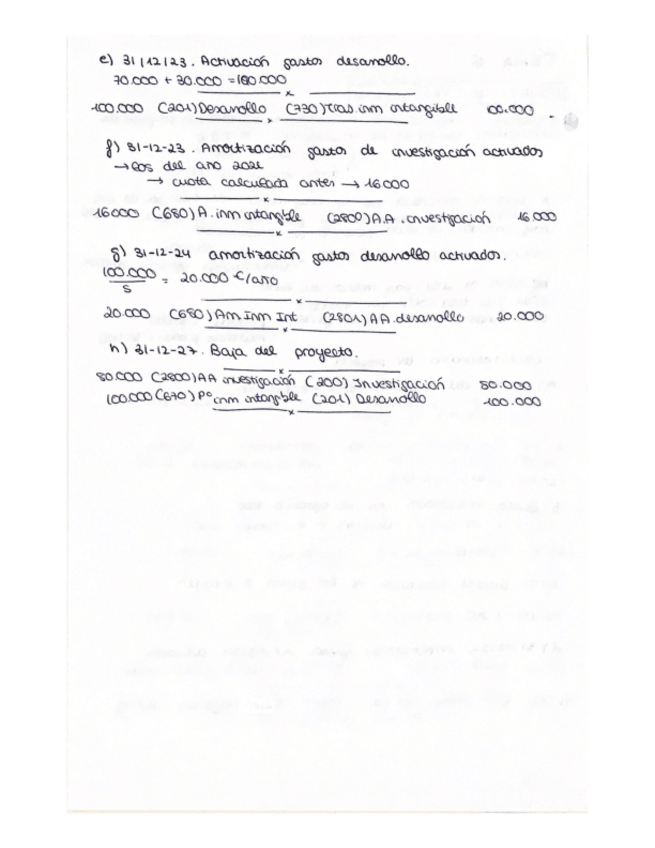 e) 31/12/23. Activación gastos desarrollo.
70.000 + 30.000 = 100.000
x
100.000 (201) Desarrollo (730) Tras. inm intangible 100.000 .
x
f) 31-12-23. Amortización gastos de investigación activados
→ los del año 2021
→ cuota calculada antes → 16000
x
16000 (680) A. inm intangible (2800) A.A. investigación 16.000
x
g) 31-12-24 amortización gastos desarrollo activados.
100.000/5 = 20.000 €/año
x
20.000 (680) Am Inm Int (2801) AA. desarrollo 20.000
x
h) 31-12-27. Baja del proyecto.
x
80.000 (2800) AA investigación (200) Investigación 80.000
100.000 (670) Pº inm intangible (201) Desarrollo 100.000
x